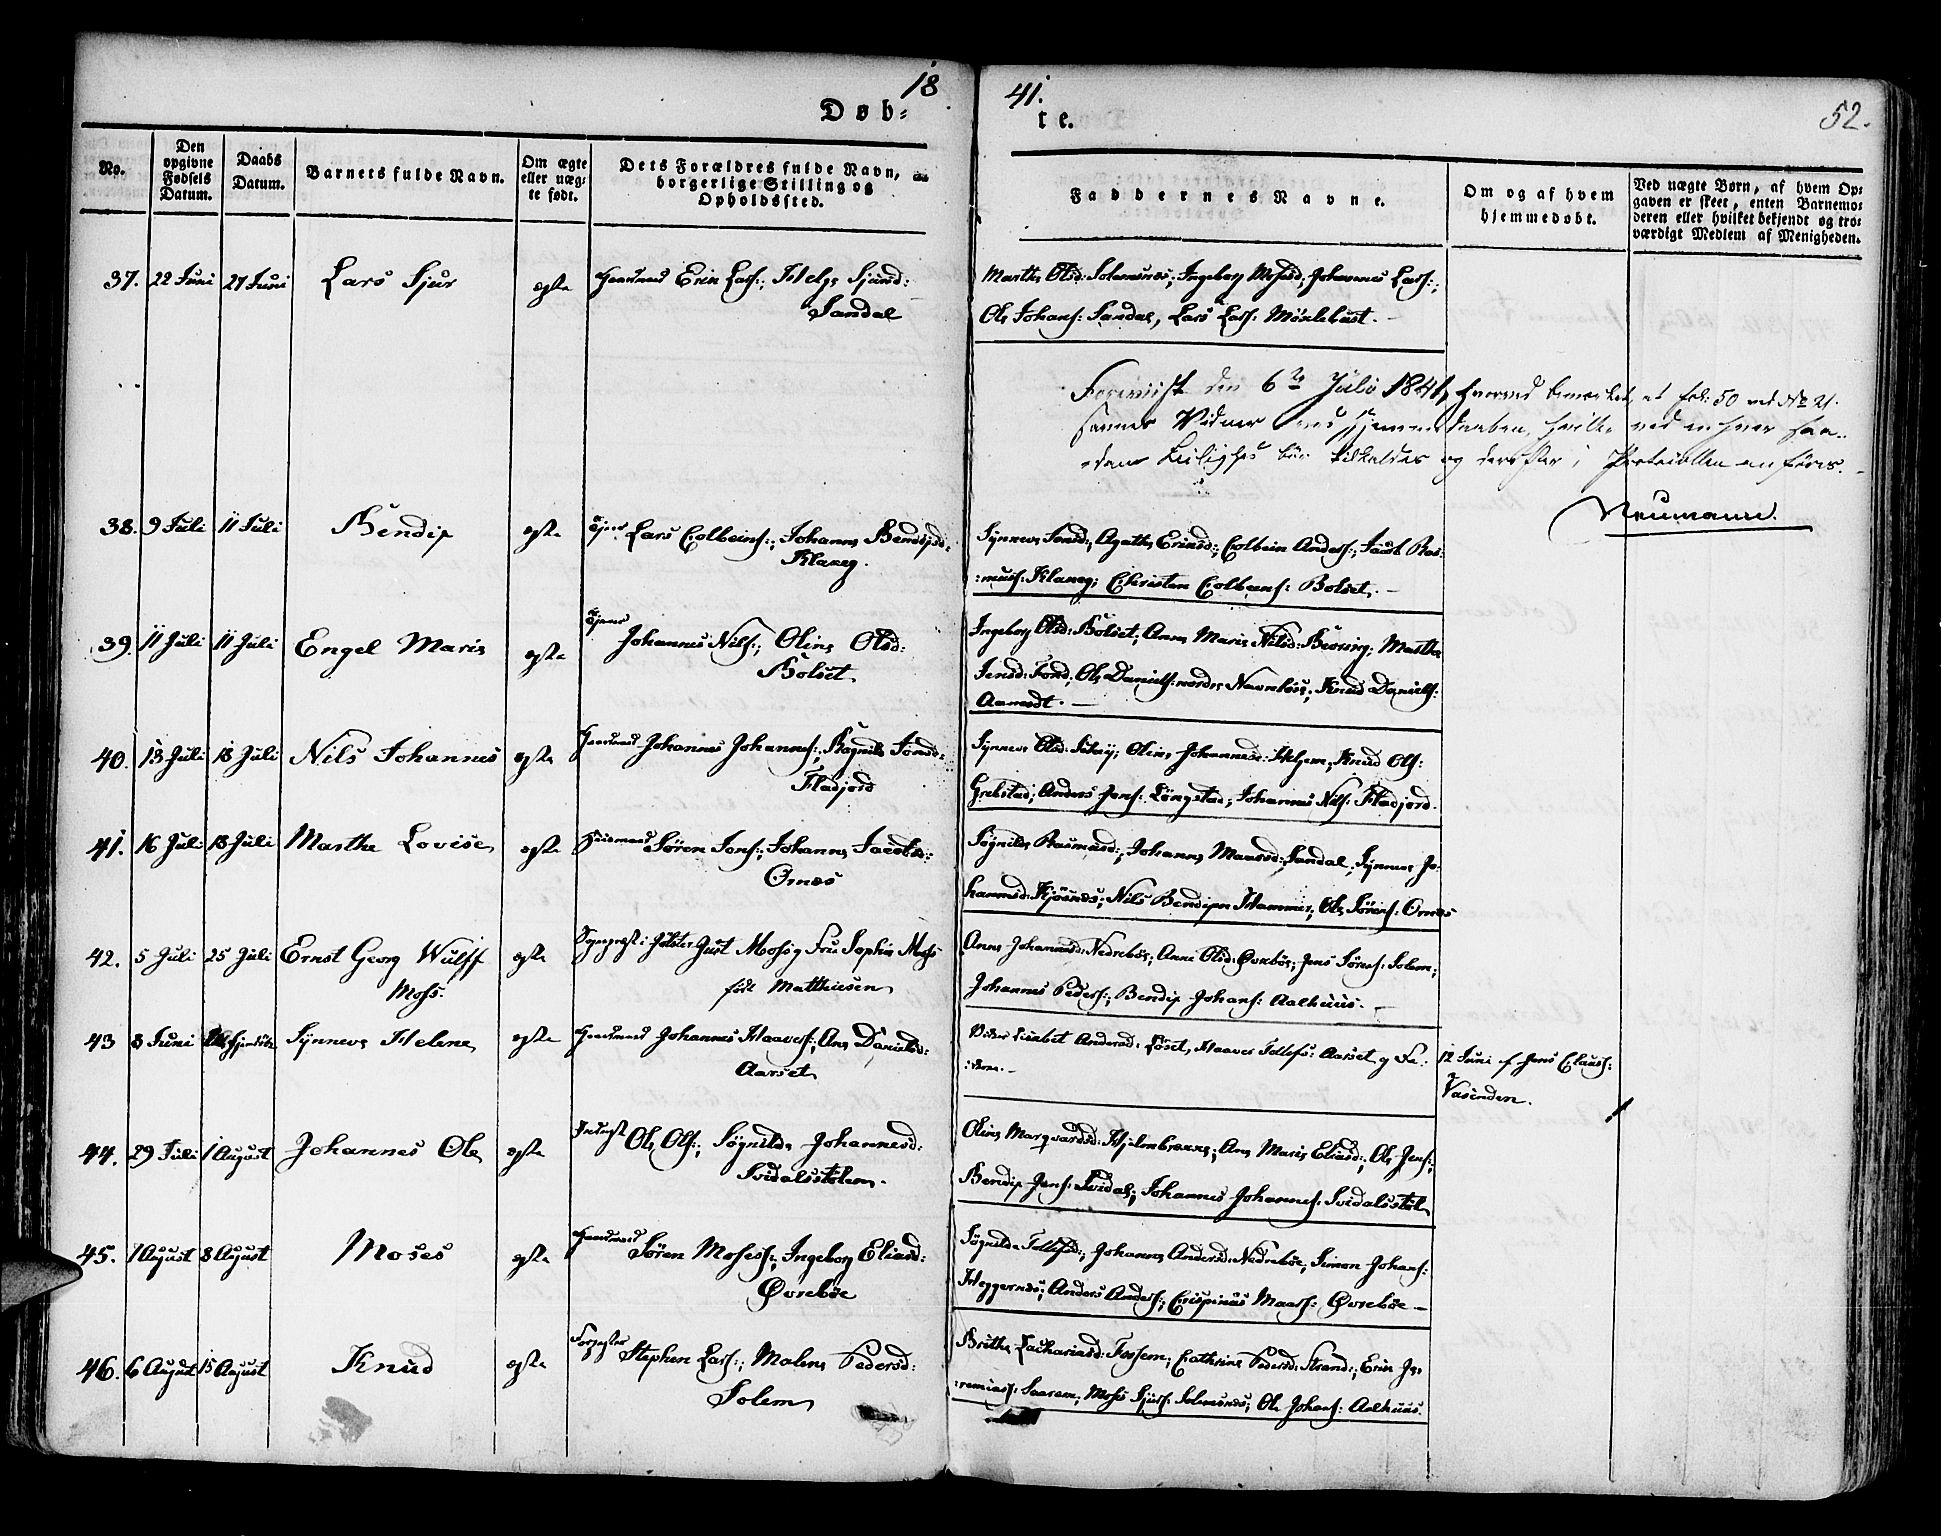 18
41.
52.
Døb-
te.
No.
Den opgivne Fødsels Datum.
Daabs Datum.
Barnets fulde Navn.
Om ægte eller uæg- te født.
Dets Forældres fulde Navn, borgerlige Stilling og Opholdssted.
Faddernes Navne.
Om og af hvem hjemmedøbt.
Ved uægte Børn, af hvem Op- gaven er skeet, enten Barnemo- deren eller hvilket bekjendt og tro- værdigt Medlem af Menigheden.
37. 22 Juni 27 Juni Lars Sjur egte Huusmand Erik Lars:, Helge Sjursd: Sandal
Marthe Olsd: Solemsnes; Ingeborg Mosesd; Johannes Lars:;
Ole Johans: Sandal, Lars Lars: Möskelhust.
Foreviist den 6te Julii 1841, hvorved bemærkes, at fol: 50 ved No 21.
savnes Vidner ved Hjemmedaaben, hvilke ved enhver saa-
dan Leilighed bør tilkaldes og derefter i Protocollen anføres.
Neumann.
38. 9 Juli 11 Juli Bendix egte Lars Colbeins:, Johanne Bendixsd: Klakeg.
Synneve Jensd:, Agathe Eriksd:, Colbein Anders:, Jacob Ras-
:mus: Klakeg; Christen Colbeins: Bolset.
39. 11 Juli 11 Juli Engel Marie egte Johannes Nils:; Oline Olsd: Bolset
Ingeborg Olsd: Bolset; Anne Marie Nilsd: Bevring; Marthe
Jensd: Fond; Ole Daniels: nordre Navnløse; Knud Daniels:
Aamodt.
40. 13 Juli 18 Juli Nils Johannes egte Huusmand Johannes Johannes:, Ragnilde Jonsd: Fladjord
Synneve Olsd: Sikny; Oline Johannesd: Helgem; Knud Ols:
Grebstad; Anders Jens: Långstad; Johannes Nils: Fladjord.
41. 16 Juli 18 Juli Marthe Lovise egte Huusmand Søren Jens:, Johanne Jacobsd: Ornes
Søgnilde Rasmusd:, Johanne Maasd: Sandal, Synneve Jo-
hannesd: Kjøsnes; Nils Bendixen Hammer; Ole Sørens: Ornes
42. 5 Juli 25 Juli Ernst Georg Wulff Mohs. egte Sogneprest i Jølster Just Mohs og Fru Sophie Mohs født Matthiesen
Anne Johannesd: Nedrebøe; Anne Olsd: Øvrebøe; Jens Sørens: Solem;
Johannes Peders:, Bendix Johans: Aalhuus.
43 8 Juni Synneve Helene egte Huusmand Johannes Haaves:, Ane Danielsd: Aarset
Vidner Lisabet Andersd: Løset, Haaver Tollefs: Aarset og Fa-
:deren.
12 Juni af Jens Clauss:
Vasenden.
44. 29 Juli 1 August Johannes Ole egte Ole Ols:, Søgnilde Johannesd: Svidalsstølen.
Oline Marqvardsd: Hjelmbrekke; Ane Marie Eliasd:, Ole Jens:,
Bendix Jens: Svidal; Johannes Johannes: Svidalsstøl
45. 1 August 8 August Moses egte Huusmand Søren Moses:, Ingeborg Eliasd: Øvrebøe
Søgnilde Tollefsd:, Johanne Andersd: Nedrebøe, Simon Johans:
Heggernes; Anders Anders:, Crispinus Maas: Øvrebøe
46. 6 August 15 August Knud egte Stephen Lars:, Malene Pedersd: Solem
Brithe Zachariasd: Fossem; Cathrine Pedersd: Strand:, Erik Je-
:remias: Saarem; Moses Sjurs: Solemsnes; Ole Johans: Aalhuus.